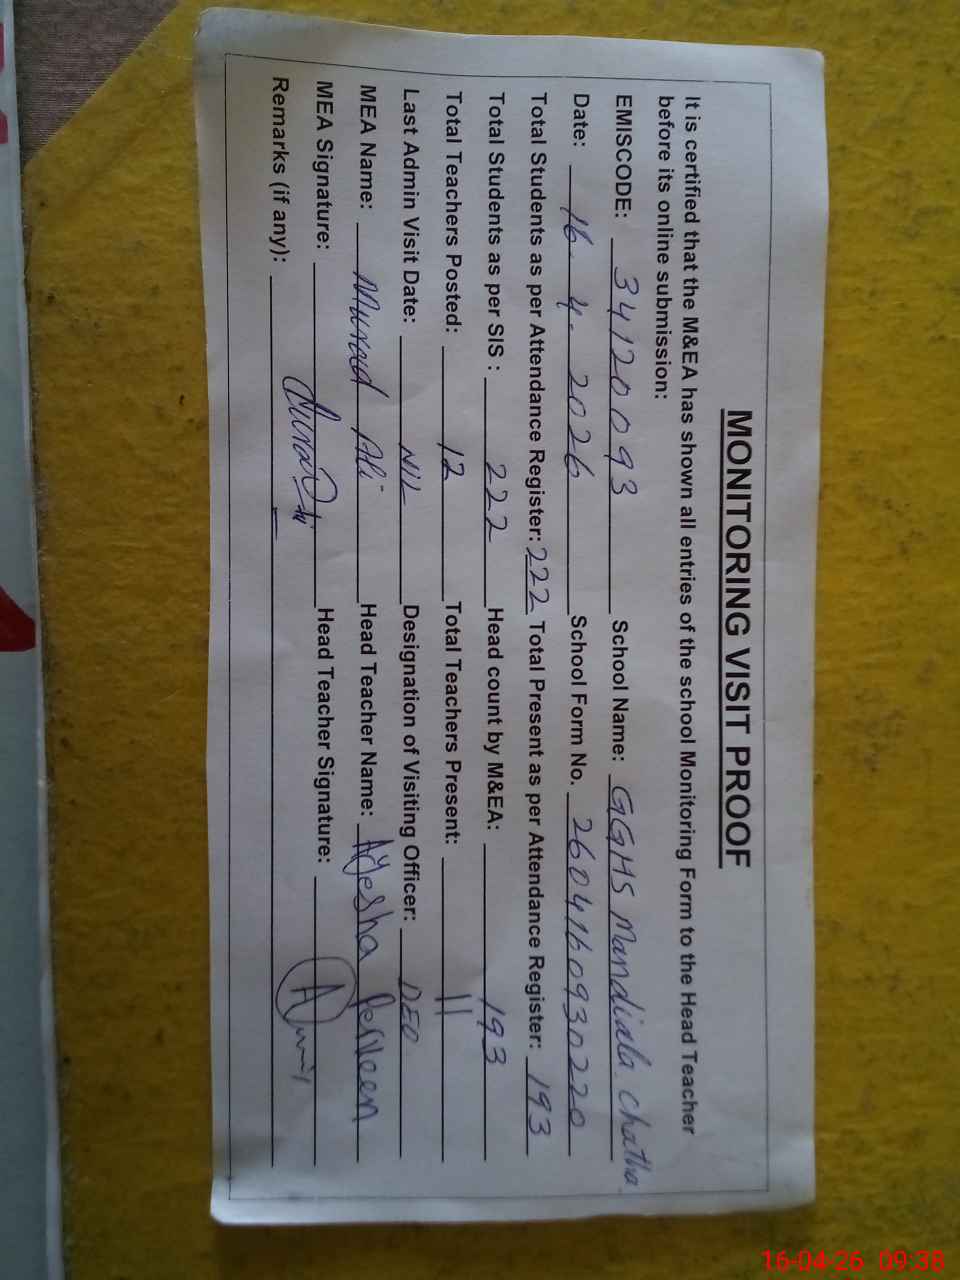 MONITORING VISIT PROOF
It is certified that the M&EA has shown all entries of the school Monitoring Form to the Head Teacher
before its online submission:
EMISCODE: 34120093 School Name: GGHS Mandiala Chatha
Date: 16.4.2026 School Form No. 2604160930220
Total Students as per Attendance Register: 222 Total Present as per Attendance Register: 193
Total Students as per SIS : 222 Head count by M&EA: 193
Total Teachers Posted: 12 Total Teachers Present: 11
Last Admin Visit Date: NIL Designation of Visiting Officer: DEO
MEA Name: Murad Ali Head Teacher Name: Ayesha Perveen
MEA Signature: Head Teacher Signature:
Remarks (if any):
16-04-26 09:38